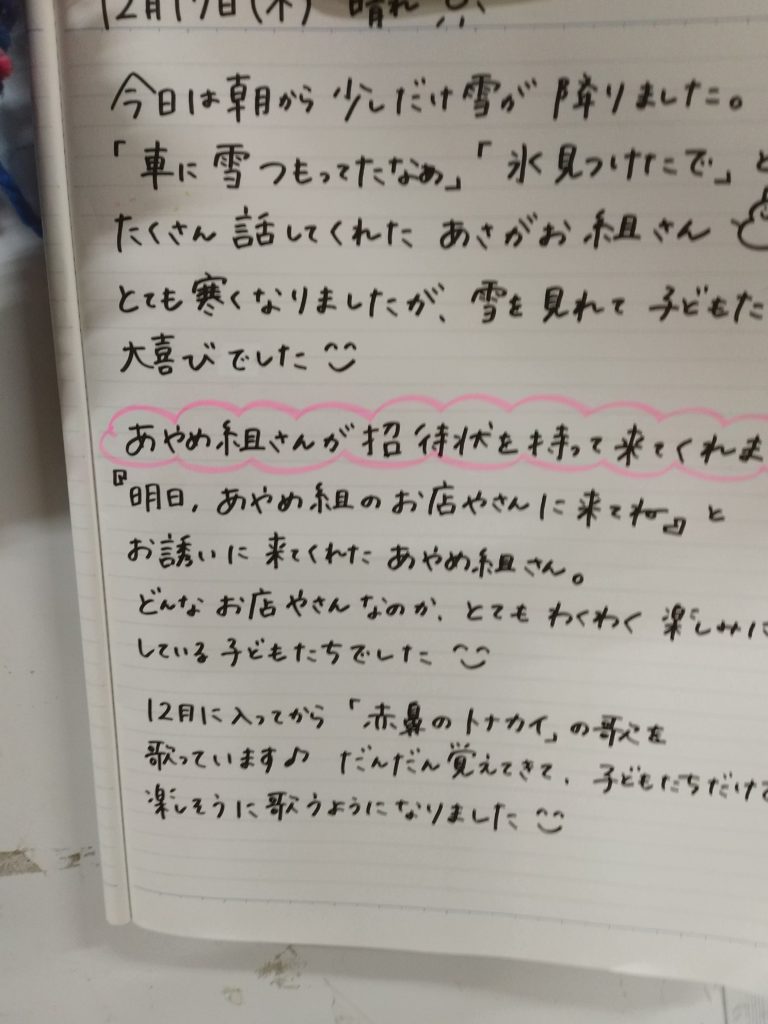 12月17日(木) 晴れ
今日は朝から少しだけ雪が降りました。
「車に雪つもってたなぁ」「氷見つけたで」と
たくさん話してくれたあさがお組さん
とても寒くなりましたが、雪を見れて子どもた
大喜びでした
あやめ組さんが招待状を持って来てくれま
『明日、あやめ組のお店やさんに来てね』と
お誘いに来てくれたあやめ組さん。
どんなお店やさんなのか、とてもわくわく楽しみに
している子どもたちでした
12月に入ってから「赤鼻のトナカイ」の歌を
歌っています♪ だんだん覚えてきて、子どもたちだけで
楽しそうに歌うようになりました